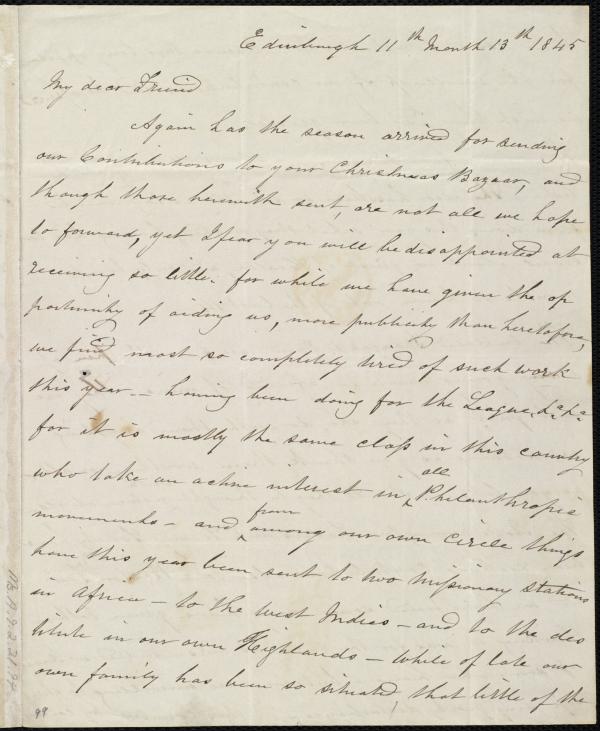 Edinburgh 11th Month 13th 1845
My dear Friend
Again has the season arrived for sending
our Contributions to your Christmas Bazaar, and
though those herewith sent, are not all we hope
to forward, yet I fear you will be disappointed at
receiving so little. for while we have given the op
portunity of aiding us, more publicity than heretofore,
we find most so completely tired of such work
this year — having been doing for the League, &c &c
for it is mostly the same class in this country
who take an active interest in all Philanthropic
movements — and from among our own circle things
have this year been sent to two Missionary Stations
in Africa — to the West Indies — and to the des
titute in our own Highlands — while of late our
own family has been so situated, that little of the
99